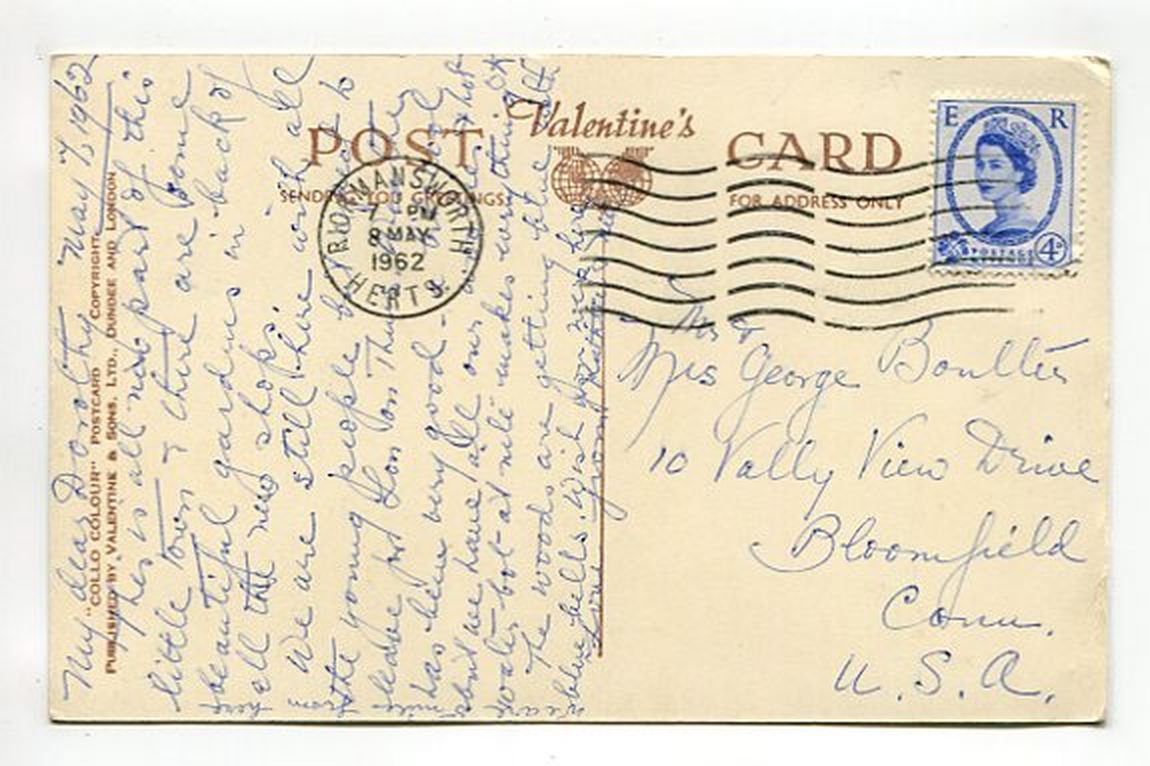 May 7, 1962
My dear Dorothy
This is all new part of this
little Town & there are some
beautiful gardens in back of
all the new shops
We are still here with all
the young people but to
leave for London Thursday
has been very good -
we have all our hot
water but at nite makes everything OK
The woods are getting blue with
blue bells. Wish you were here
Love from
"COLLO COLOUR" POSTCARD COPYRIGHT.
PUBLISHED BY VALENTINE & SONS, LTD., DUNDEE AND LONDON
POST Valentine's CARD
SENDING YOU GREETINGS
FOR ADDRESS ONLY
RICKMANSWORTH
PM
8 MAY
1962
HERTS.
E R
POSTAGE
4D
Mr &
Mrs George Boulter
10 Vally View Drive
Bloomfield
Conn.
U.S.A.